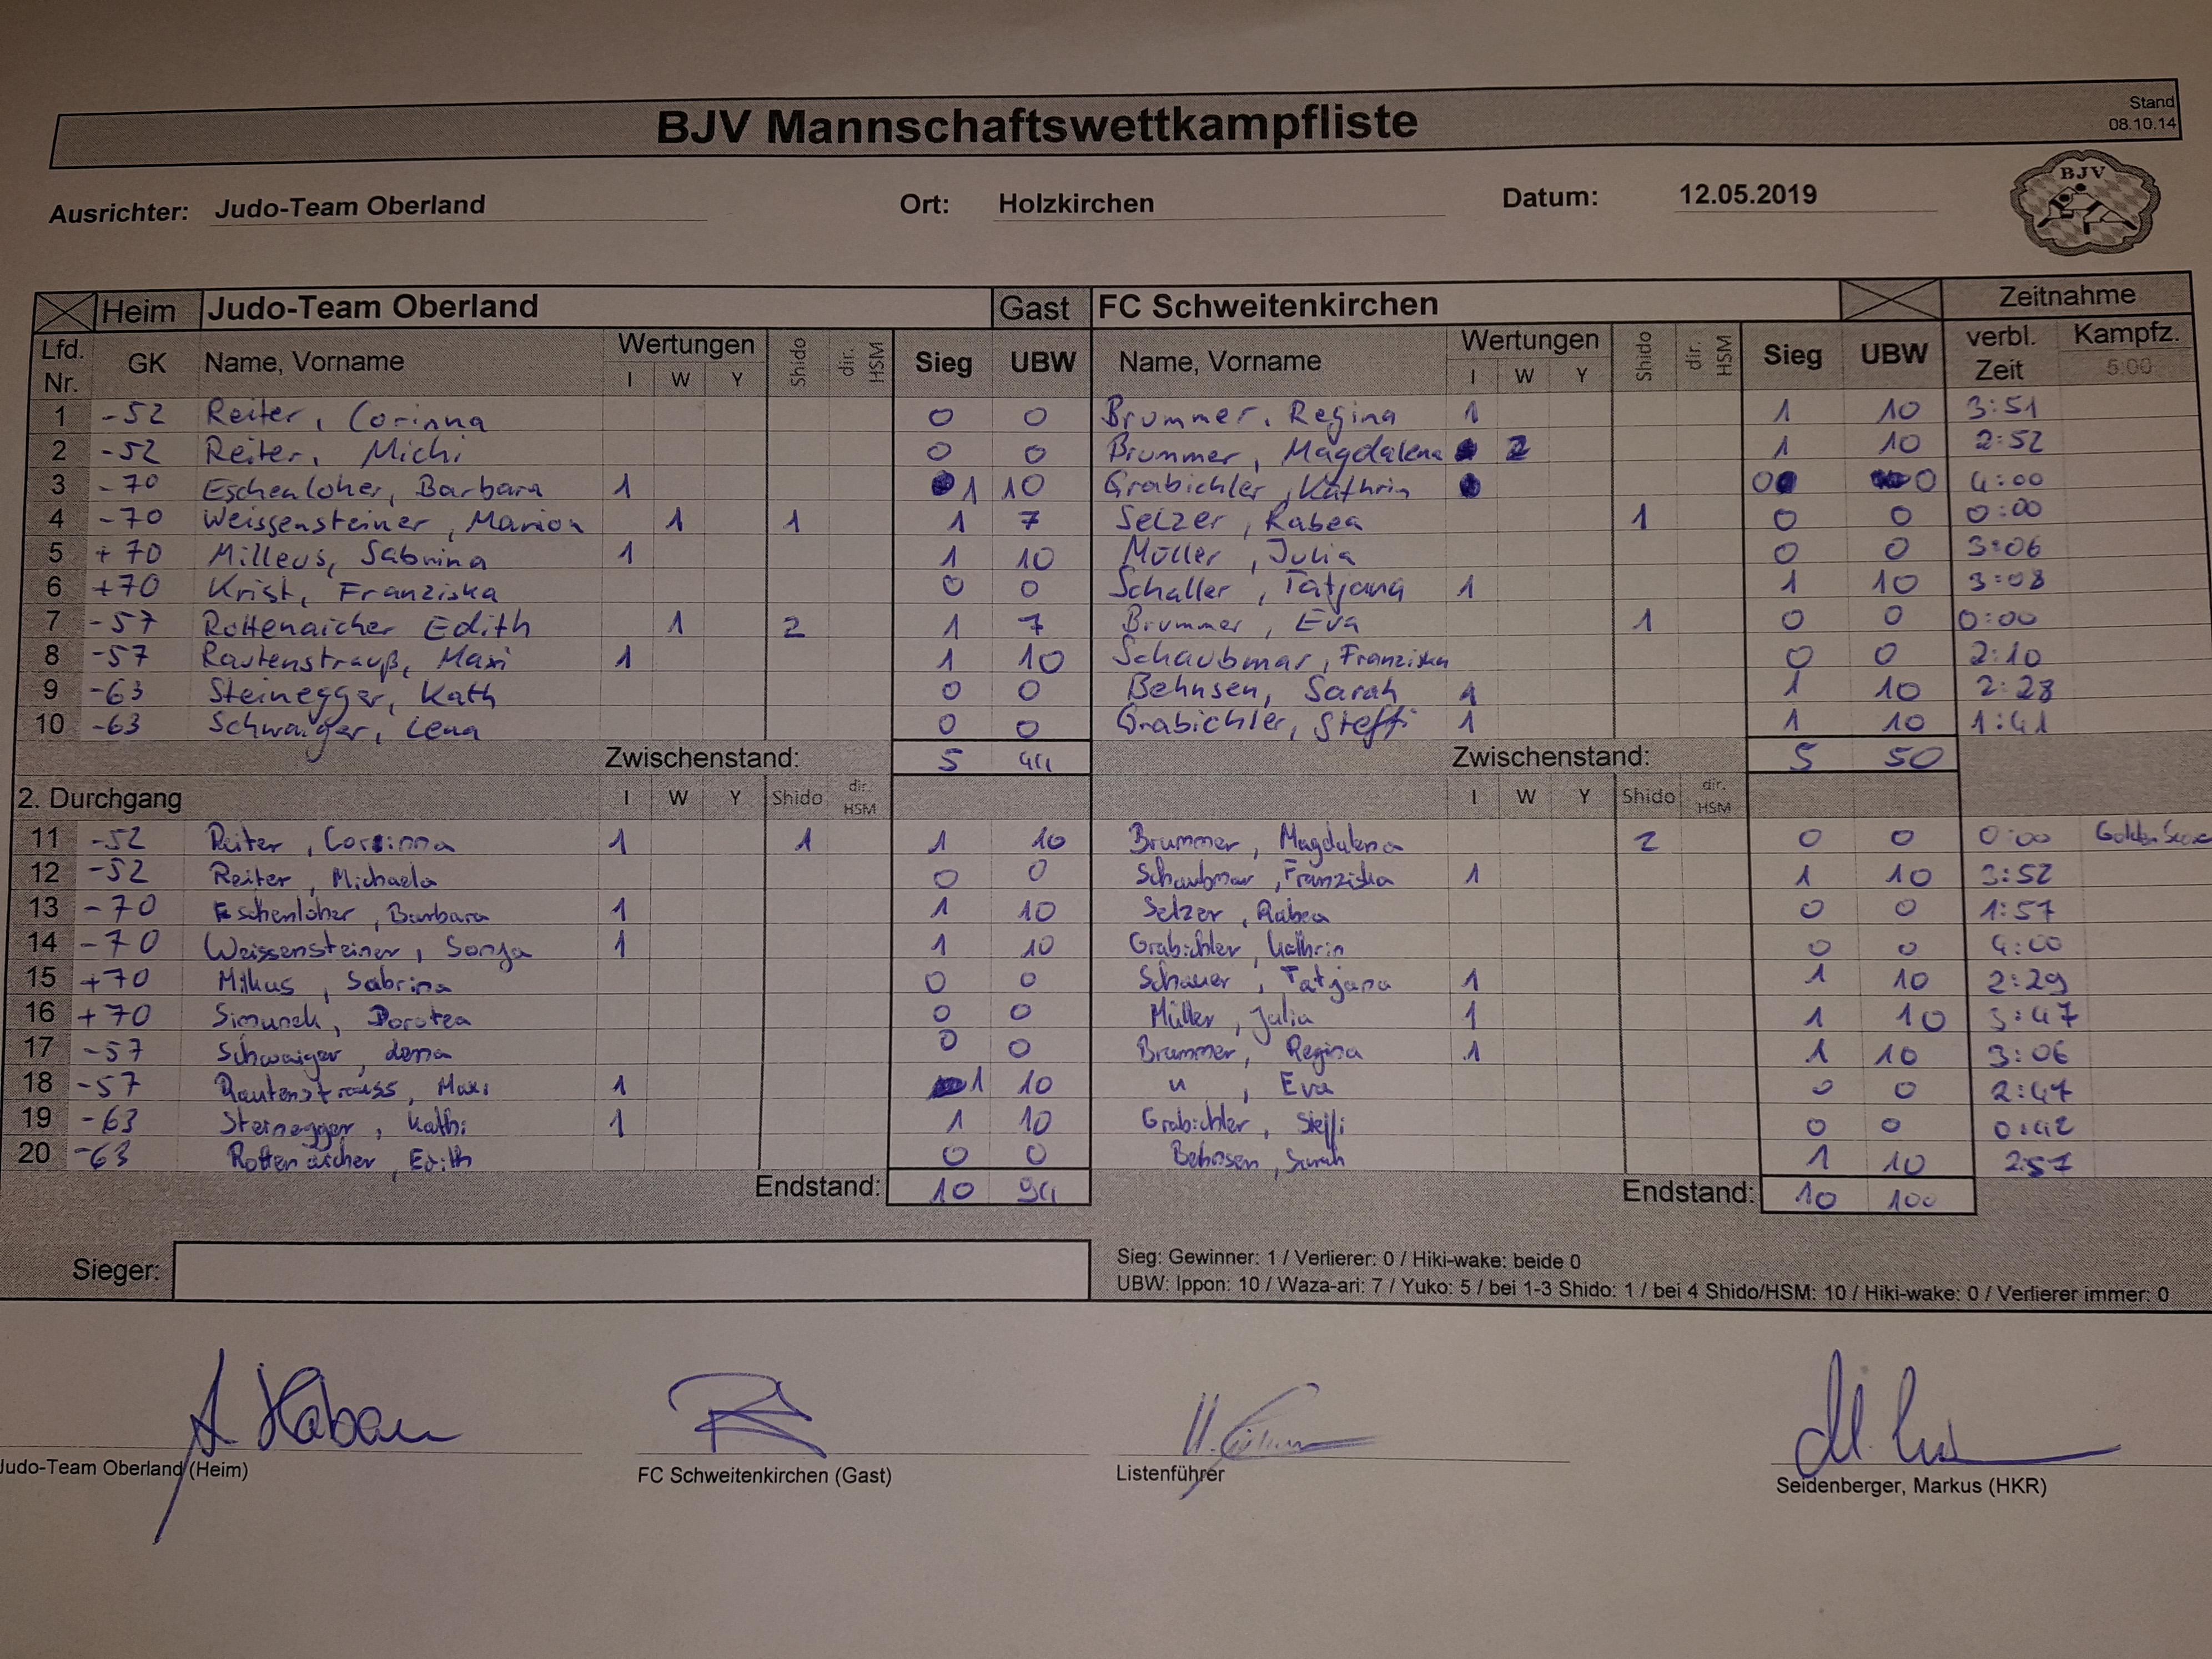 BJV Mannschaftswettkampfliste
Stand
08.10.14
Ausrichter: Judo-Team Oberland Ort: Holzkirchen Datum: 12.05.2019
BJV
Heim Judo-Team Oberland Gast FC Schweitenkirchen Zeitnahme
Lfd. Nr. GK Name, Vorname Wertungen I W Y Shido dir. HSM Sieg UBW Name, Vorname Wertungen I W Y Shido dir. HSM Sieg UBW verbl. Zeit Kampfz. 5:00
1 -52 Reiter, Corinna 0 0 Brummer, Regina 1 1 10 3:51
2 -52 Reiter, Michi 0 0 Brummer, Magdalena 2 1 10 2:52
3 -70 Eschenloher, Barbara 1 1 10 Grabichler, Kathrin 0 0 4:00
4 -70 Weissensteiner, Marion 1 1 1 7 Selzer, Rabea 1 0 0 0:00
5 +70 Milleus, Sabrina 1 1 10 Müller, Julia 0 0 3:06
6 +70 Krist, Franziska 0 0 Schaller, Tatjana 1 1 10 3:08
7 -57 Rottenaicher Edith 1 2 1 7 Brummer, Eva 1 0 0 0:00
8 -57 Rautenstrauß, Maxi 1 1 10 Schaubmar, Franziska 0 0 2:10
9 -63 Steinegger, Kath 0 0 Behnsen, Sarah 1 1 10 2:28
10 -63 Schwaiger, Lena 0 0 Grabichler, Steffi 1 1 10 1:41
Zwischenstand: 5 44 Zwischenstand: 5 50
2. Durchgang I W Y Shido dir. HSM I W Y Shido dir. HSM
11 -52 Reiter, Corinna 1 1 1 10 Brummer, Magdalena 2 0 0 0:00 Golden Score
12 -52 Reiter, Michaela 0 0 Schaubmar, Franziska 1 1 10 3:52
13 -70 Eschenloher, Barbara 1 1 10 Selzer, Rabea 0 0 1:57
14 -70 Weissensteiner, Sonja 1 1 10 Grabichler, Kathrin 0 0 4:00
15 +70 Milkus, Sabrina 0 0 Schauer, Tatjana 1 1 10 2:29
16 +70 Simunek, Dorotea 0 0 Müller, Julia 1 1 10 3:47
17 -57 Schwaiger, Lena 0 0 Brummer, Regina 1 1 10 3:06
18 -57 Rautenstrauss, Maxi 1 1 10 " , Eva 0 0 2:47
19 -63 Steinegger, Kathi 1 1 10 Grabichler, Steffi 0 0 0:42
20 -63 Rottenaicher, Edith 0 0 Behnsen, Sarah 1 10 2:57
Endstand: 10 94 Endstand: 10 100
Sieger:
Sieg: Gewinner: 1 / Verlierer: 0 / Hiki-wake: beide 0
UBW: Ippon: 10 / Waza-ari: 7 / Yuko: 5 / bei 1-3 Shido: 1 / bei 4 Shido/HSM: 10 / Hiki-wake: 0 / Verlierer immer: 0
Judo-Team Oberland (Heim) FC Schweitenkirchen (Gast) Listenführer Seidenberger, Markus (HKR)